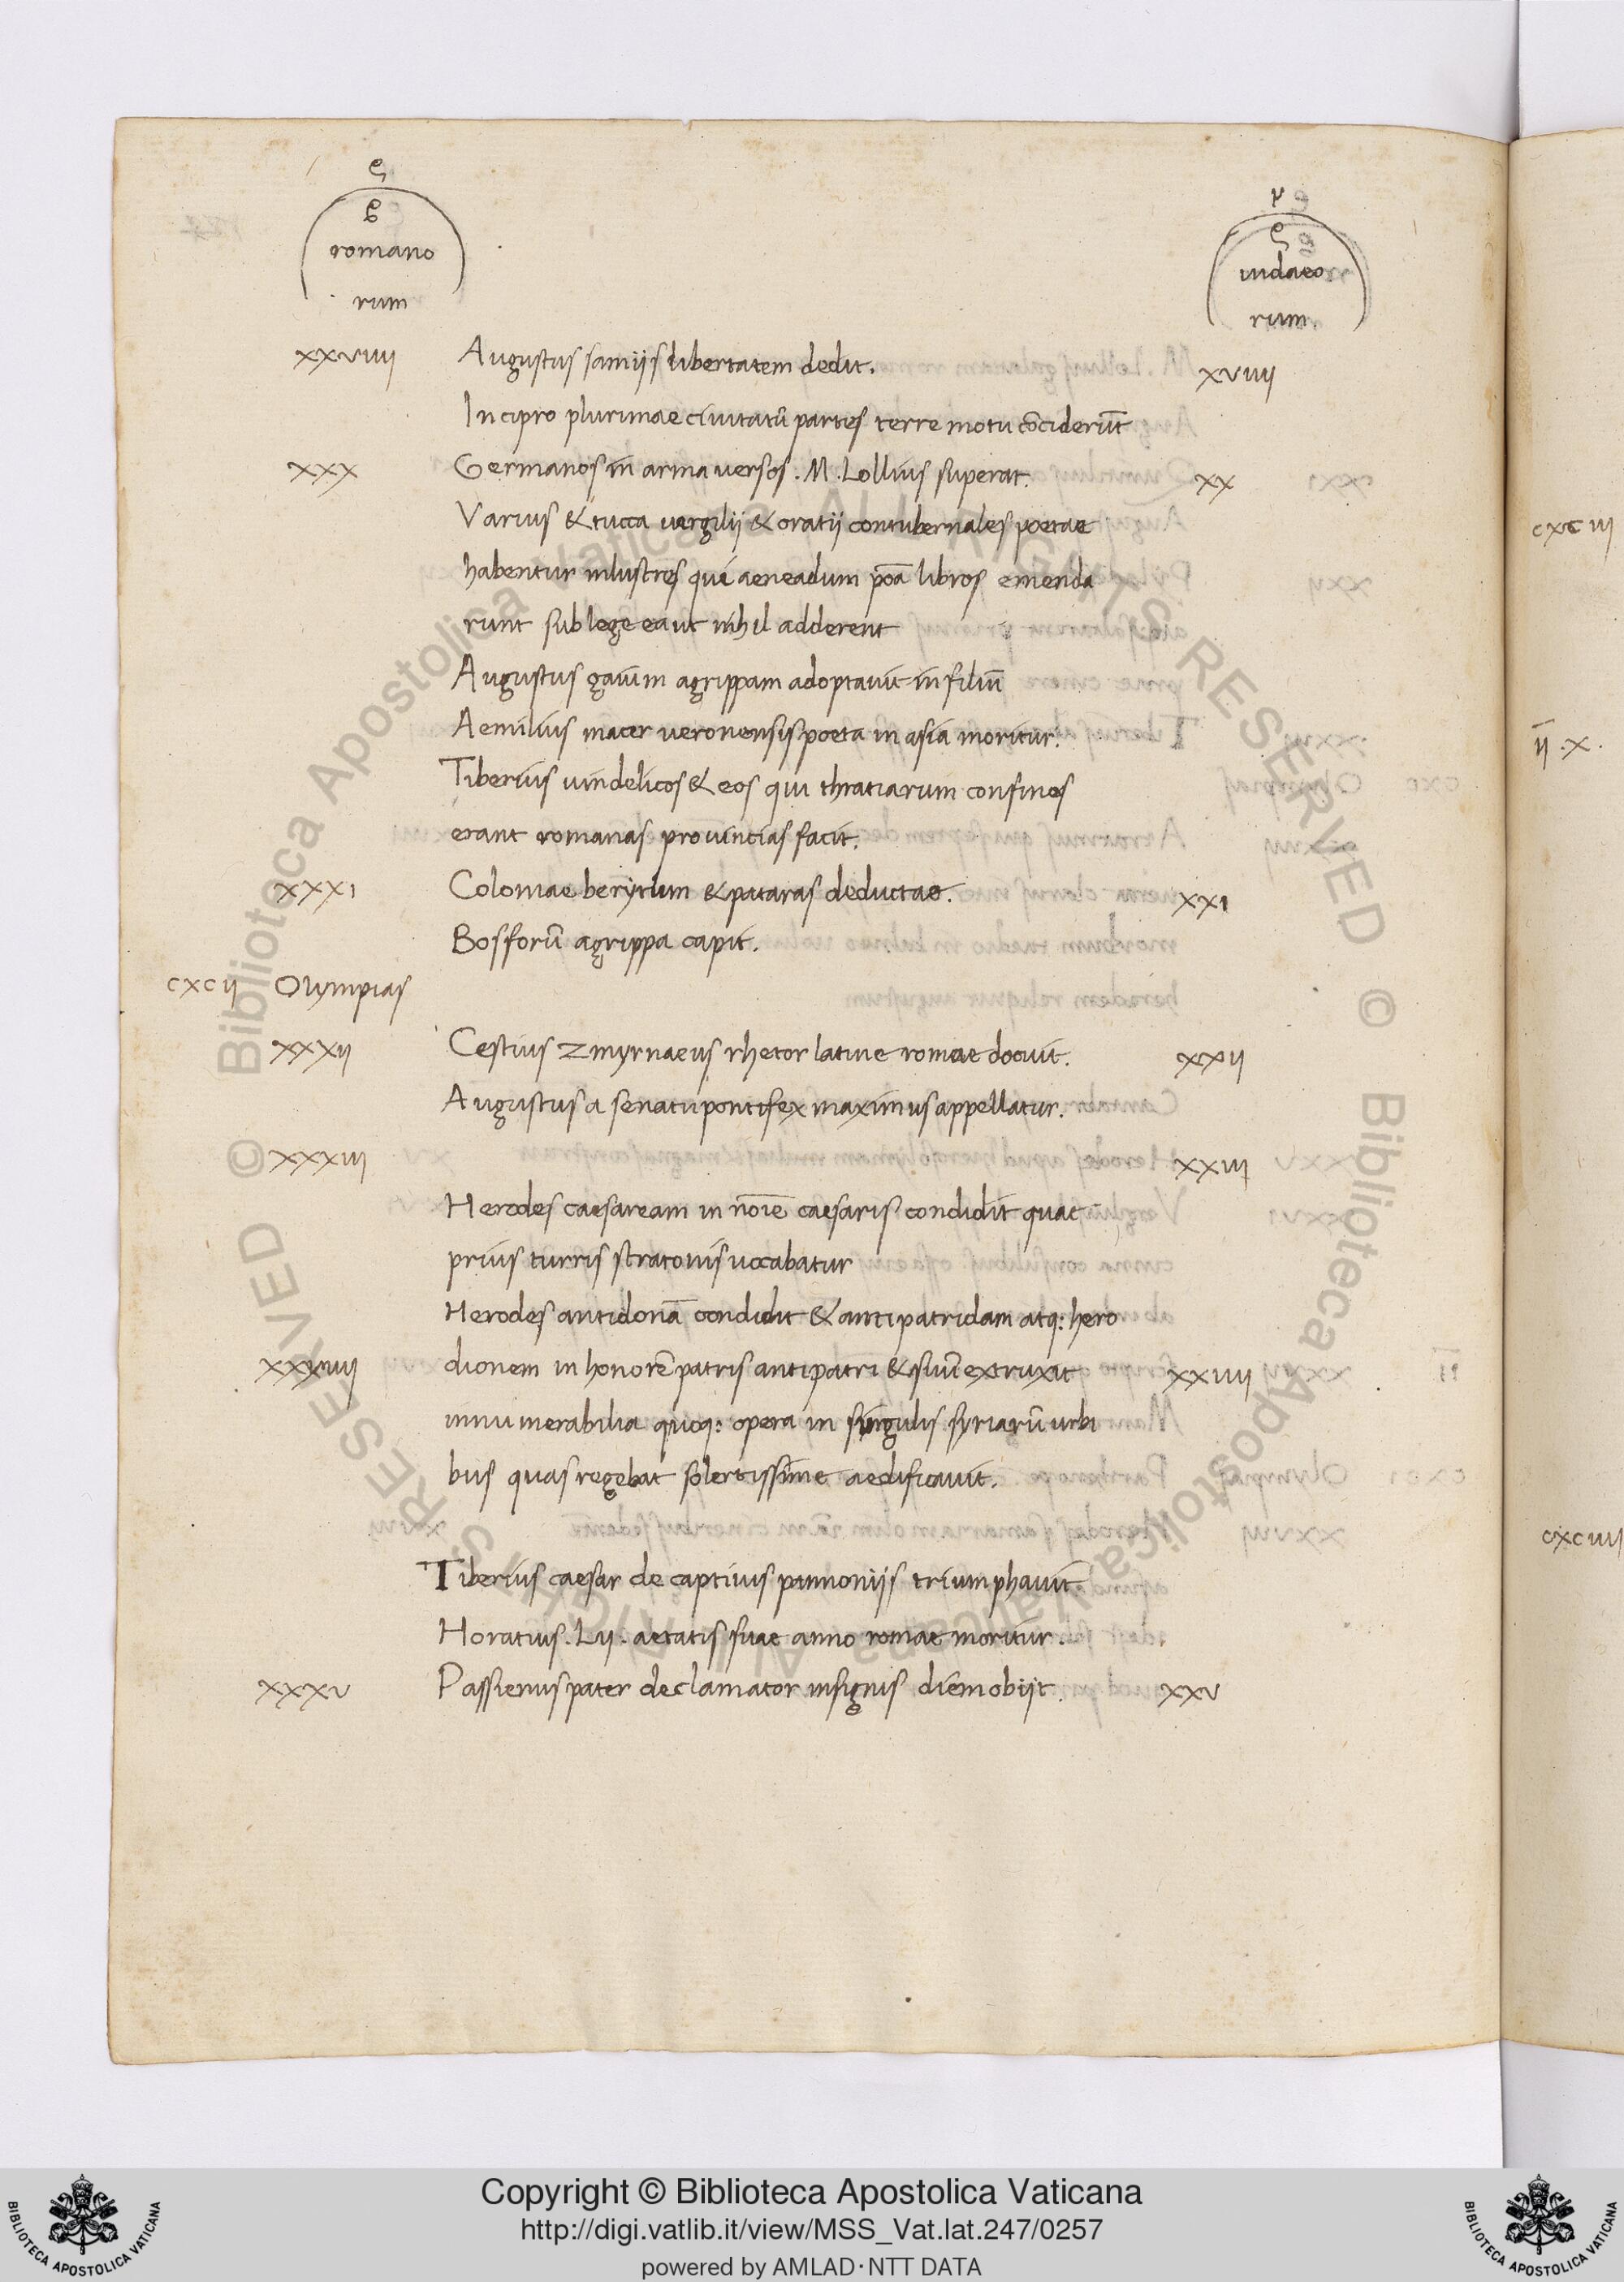 romano
rum
iudaeo
rum
xxviiij Augustus samiis libertatem dedit. xviiij
In cipro plurimae ciuitatū partes terre motu cōciderūt
xxx Germanos in arma versos. M. Lollius superat. xx
Varius & tucca uergilij & oratij contubernales poetae
habentur inlustres qui aeneadum poā libros emenda
runt sub lege ea ut nihil adderent
Augustus gaium agrippam adoptauit in filiū
Aemilius macer ueronensis poeta in asia moritur.
Tiberius uindelicos & eos qui thratiarum confines
erant romanas prouincias facit.
xxxi Coloniae berytum & pataras deductae. xxi
Bosforū agrippa capit.
cxcij Olympias
xxxij Cestius zmyrnaeus rhetor latine romae docuit. xxij
Augustus a senatu pontifex maximus appellatur.
xxxiij xxiij
Herodes caesaream in noīe caesaris condidit quae
prius turris stratonis uocabatur
Herodes antidonā condidit & antipatridam atq: hero
xxxiiij dionem in honorē patris antipatri & suū extruxit xxiiij
innumerabilia quoq: opera in singulis syriarū urbi
bus quas regebat solertissime aedificauit.
Tiberius caesar de captiuis pannoniis triumphauit
Horatius. Lij. aetatis suae anno romae moritur.
xxxv Passienus pater declamator insignis diem obiit. xxv
cxciij
ij .x.
cxciiij
Biblioteca Apostolica Vaticana ALL RIGHTS RESERVED ©
Biblioteca Apostolica Vaticana ALL RIGHTS RESERVED ©
Copyright © Biblioteca Apostolica Vaticana
http://digi.vatlib.it/view/MSS_Vat.lat.247/0257
powered by AMLAD·NTT DATA
BIBLIOTECA APOSTOLICA VATICANA
BIBLIOTECA APOSTOLICA VATICANA